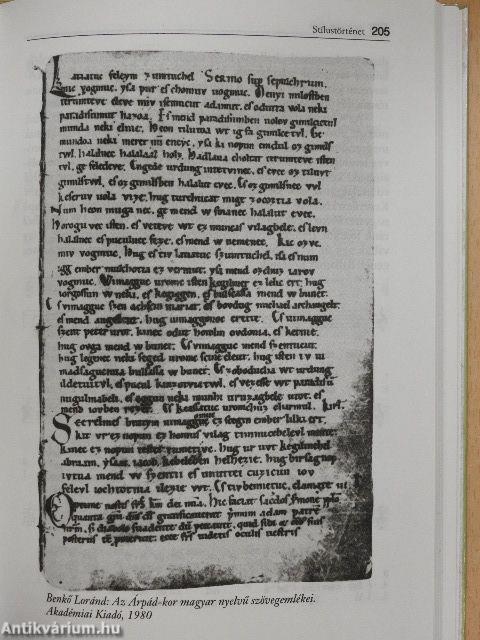 Stílustörténet 205
Latiatuc feleym zumtuchel Sermo sup sepulchrum.
mic vogmuc. ysa pur es chomuv uogmuc. Menyi milostben
terumteve eleve miv isemucut adamut. es odutta vola neki
paradisumut hazoa. Es mend paradisumben uolov gimilcictul
munda neki elnie. Heon tilutoa wt ig fa gimilce tvl. Ge
mundoa neki meret nu eneyc. ysa ki nopun emdul oz gimils
tvl. halalnec halalaal holz. Hadlaua choltat terumteve isten
tvl. ge feledeve. Engede urdung intetvinec. es evec oz tiluvt
gimilstvl. es oz gimilsben halalut evec. Es oz gimilsnec vvl
keseruv uola vize. hug turchucat mige zocoztia vola.
Num heon muga nec. ge mend w foianec halalut evec.
Horogu vec isten. es veteve wt ez muncas vilagbele. es levn
halalnec es poculnec feze. es mend w nemenec. Kic ozvc.
miv vogmuc. Hug es tiv latiatuv szumtuchel. isa es num
igg ember mulchotia ez vermut. ysa mend ozchuz iarov
vogmuc. Wimagguc uromv isten kegilmet ez lelic ert. hug
iorgossun w neki. es kegiggen. es bulsassa mend w bunet.
Es vimagguc szen achscin mariat. es bovdug michael archangelt.
es mend angelcut. hug uimaggonoc erette. Es uimagguc
szent peter urot. kinec odut hotolm ovdonia. es ketnie.
hug ovga mend w bunet. Es vimagguc mend szentucut.
hug legenec neki seged uromv scine eleut. hug isten iv ui
madsagucmia bulsassa w bunet. Es zoboducha wt urdung
ildetuitvl. es pucul kinzotviatvl. es vezesse wt paradisu
nugulmabeli. es oggun neki munhi uruzagbele utot. es
mend iovben rezet. Es keassatuc uromchuz charmul. Kirl.
Scerelmes bratym uimagguc ez scegin ember lilki ert.
kit vr ez nopun ez homus vilag timnucebelevl mente.
kinec ez nopun testet tumetivc. hug ur uvt kegilmehel
abraam. ysaac. iacob. kebeleben helhezie. hug birsagnop
ivtva mend w szentii es unuttei cuzicun iov
felevl iochtotnia ilezie wt. Es tivbennetuc. clamate iii
Benkő Loránd: Az Árpád-kor magyar nyelvű szövegemlékei.
Akadémiai Kiadó, 1980
Antikvárium.hu
www.antikvarium.hu